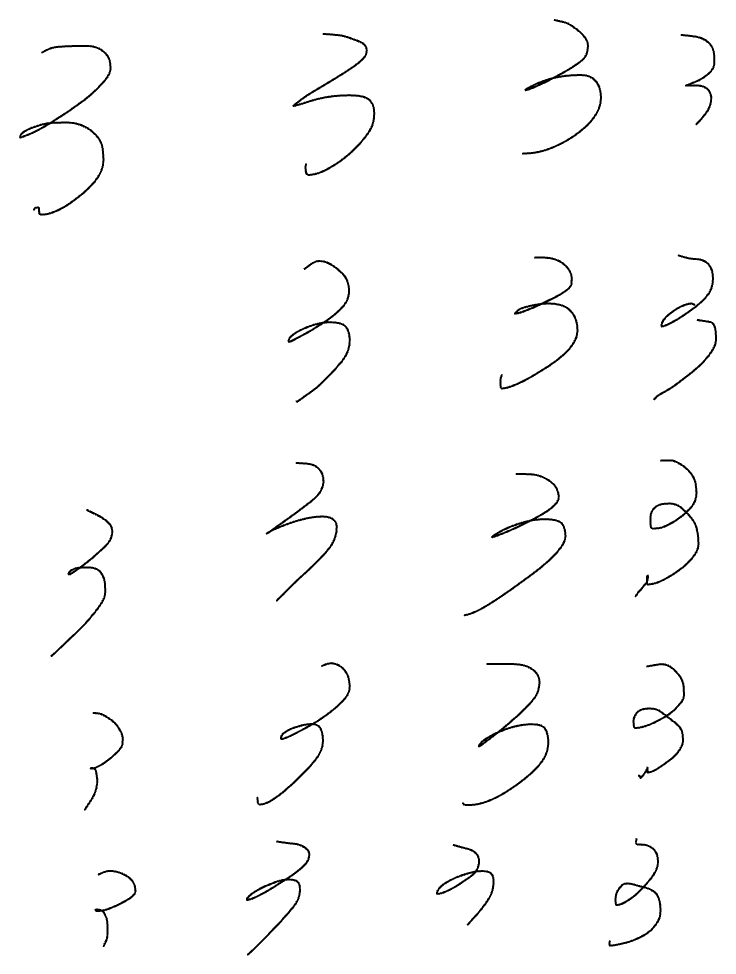 3 3 3 3
3 3 3
3 3 3 3
3 3 3 3
3 3 3 3